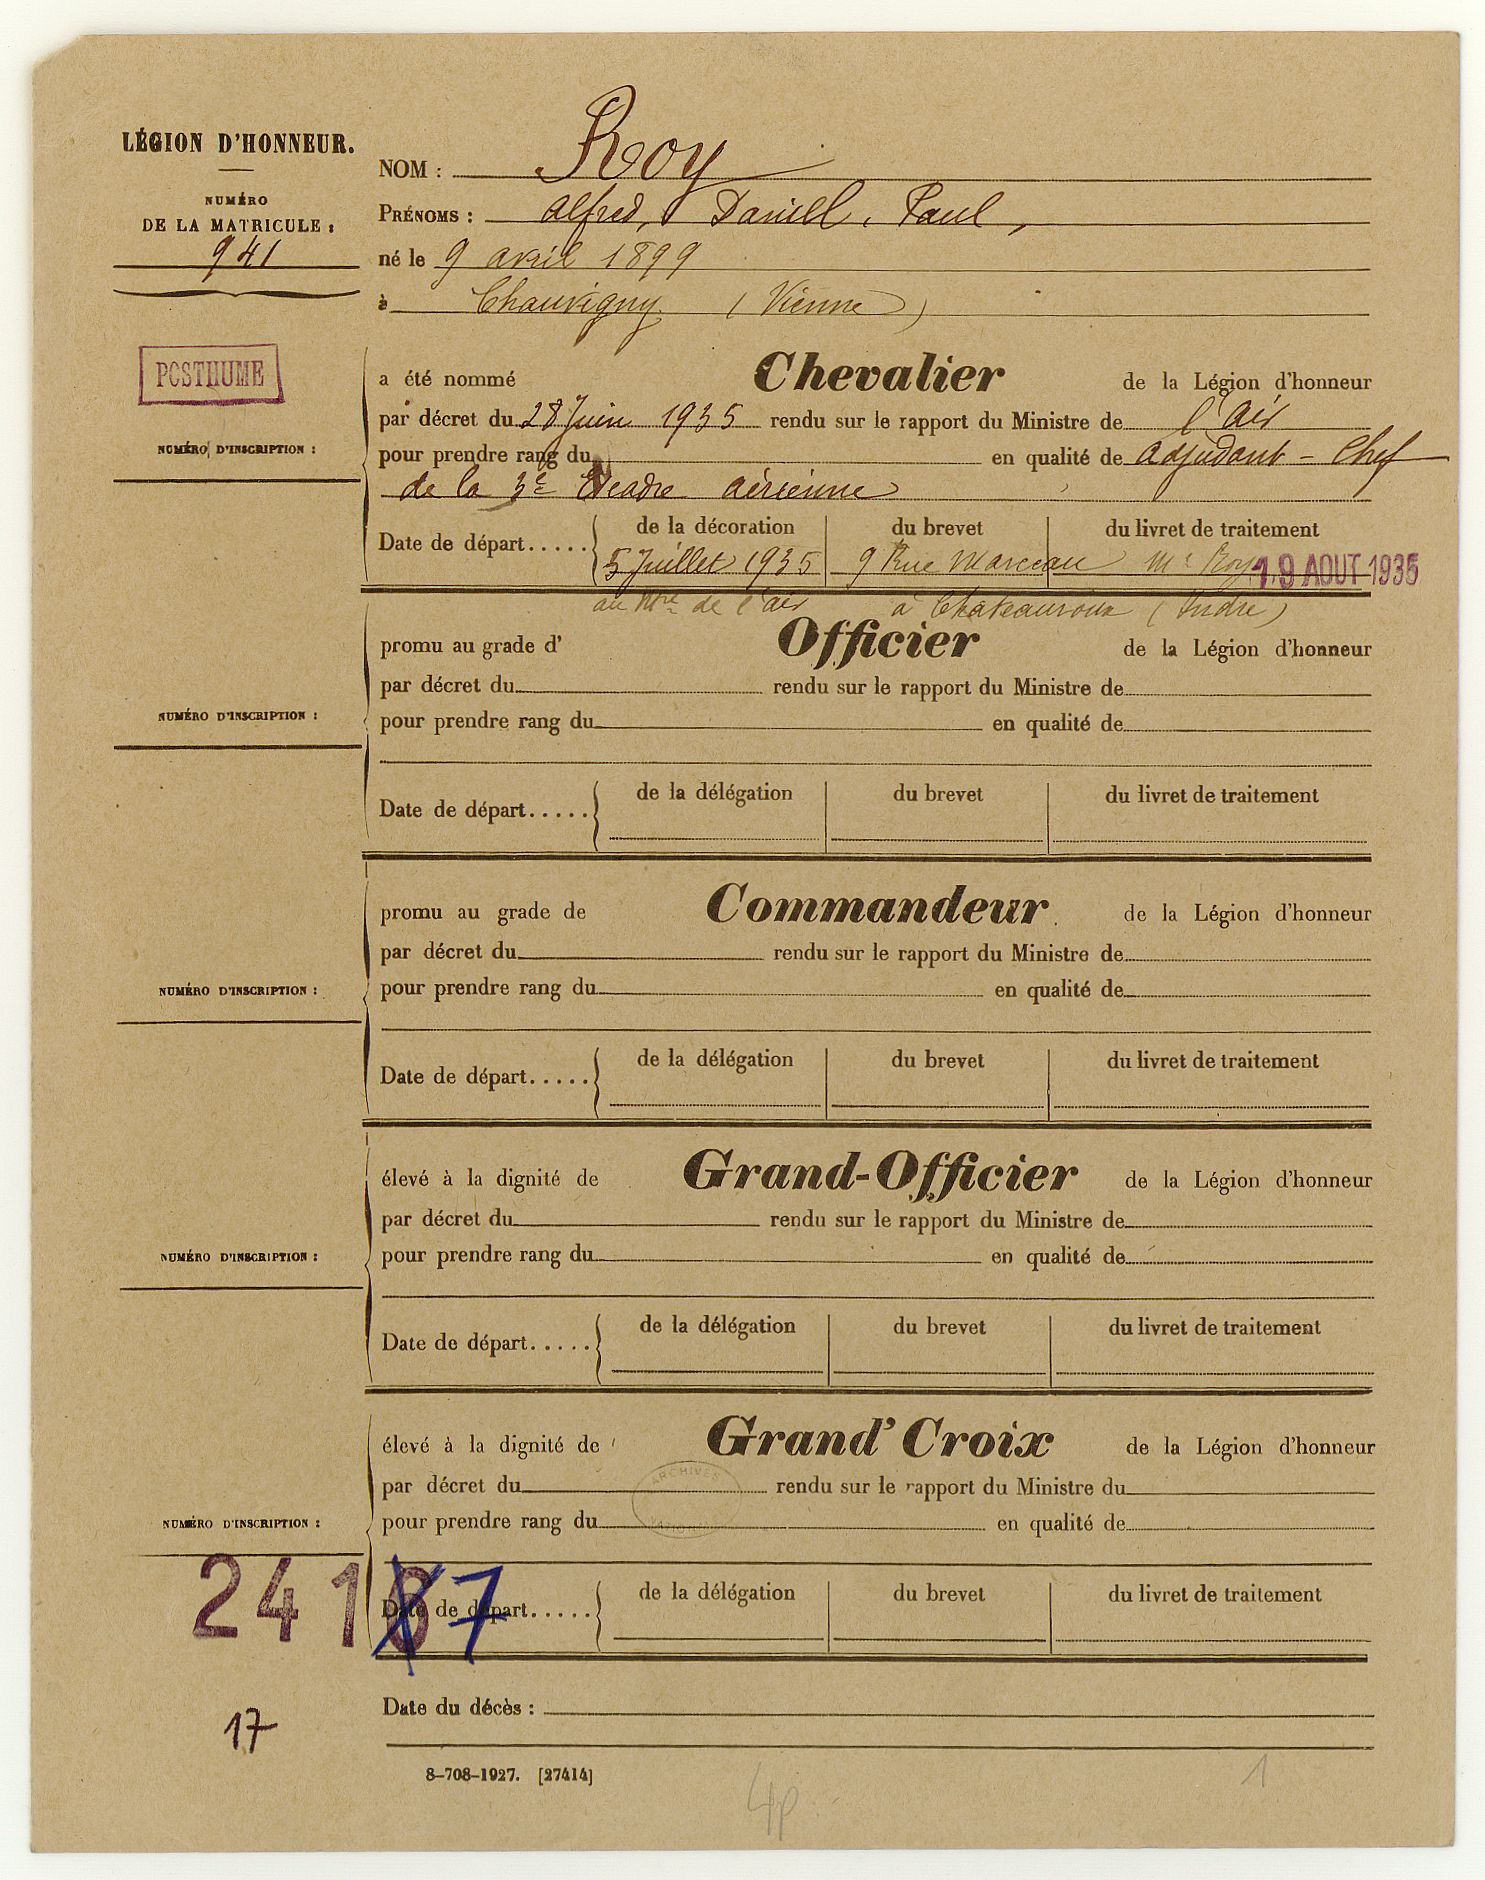 LÉGION D'HONNEUR.
NUMÉRO
DE LA MATRICULE :
941
NOM : Roy
PRÉNOMS : Alfred, Daniel, Paul,
né le 9 avril 1899
à Chauvigny (Vienne)
POSTHUME
NUMÉRO D'INSCRIPTION :
a été nommé Chevalier de la Légion d'honneur
par décret du 28 Juin 1935 rendu sur le rapport du Ministre de l'Air
pour prendre rang du en qualité de adjudant-chef
de la 3e Escadre aérienne
Date de départ..... de la décoration du brevet du livret de traitement
5 Juillet 1935 9 Rue Marceau Roy 19 AOUT 1935
au Mre de l'air à Chateauroux (Indre)
promu au grade d' Officier de la Légion d'honneur
par décret du rendu sur le rapport du Ministre de
NUMÉRO D'INSCRIPTION :
pour prendre rang du en qualité de
Date de départ..... de la délégation du brevet du livret de traitement
promu au grade de Commandeur de la Légion d'honneur
par décret du rendu sur le rapport du Ministre de
NUMÉRO D'INSCRIPTION :
pour prendre rang du en qualité de
Date de départ..... de la délégation du brevet du livret de traitement
élevé à la dignité de Grand-Officier de la Légion d'honneur
par décret du rendu sur le rapport du Ministre de
NUMÉRO D'INSCRIPTION :
pour prendre rang du en qualité de
Date de départ..... de la délégation du brevet du livret de traitement
élevé à la dignité de Grand'Croix de la Légion d'honneur
ARCHIVES
par décret du rendu sur le rapport du Ministre du
NUMÉRO D'INSCRIPTION :
pour prendre rang du en qualité de
24167
Date de départ..... de la délégation du brevet du livret de traitement
Date du décès :
17
8-708-1927. [27414]
4p
1